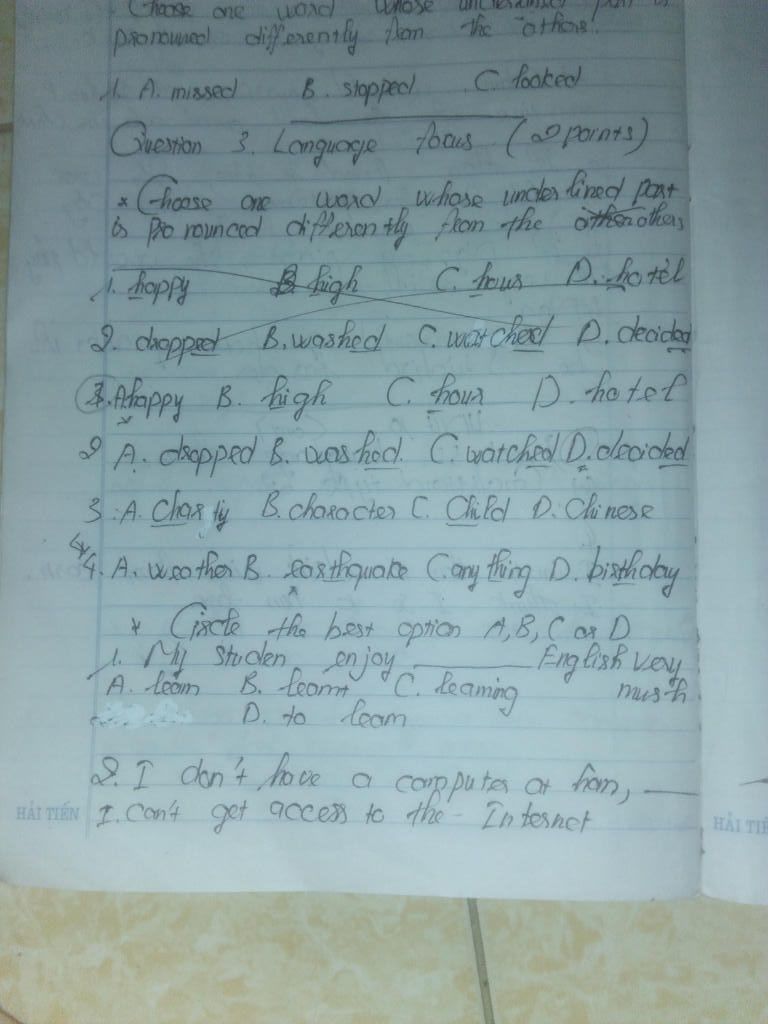 Choose one word whose underlined part is
pronounced differently from the others!
1. A. missed B. stopped C. looked
Question 3. Language focus (2 points)
* Choose one word whose underlined part
is pronounced differently from the others
1. happy B. high C. hour D. hotel
2. dropped B. washed C. watched D. decided
1. A. happy B. high C. hour D. hotel
2 A. dropped B. washed C. watched D. decided
3. A. Charity B. character C. Child D. Chinese
4. A. weather B. earthquake C. anything D. birthday
* Circle the best option A, B, C or D
1. My studen enjoy ______ English very
A. learn B. learnt C. learning mush
D. to learn
2. I don't have a computer at hom, ___
I. can't get access to the Internet
HẢI TIẾN
HẢI TIẾ